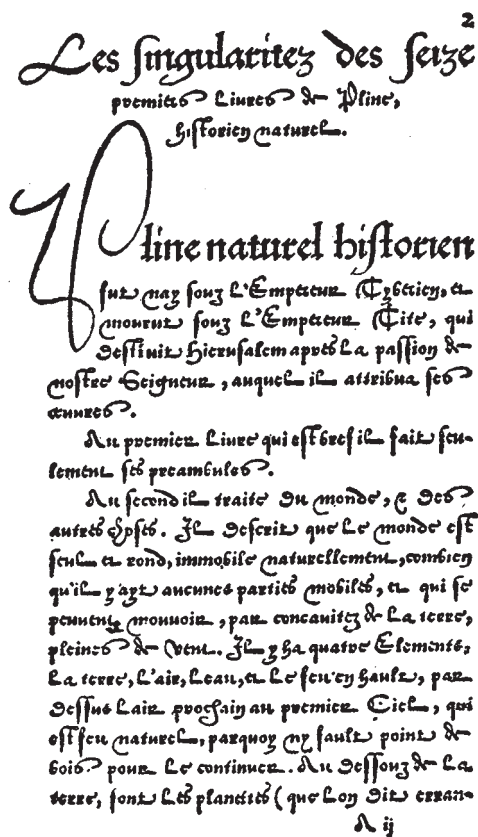 2
Les singularitez des seize
premiers Livres de Pline,
historien naturel.
Pline naturel historien
fut nay souz L'Empereur Tyberien, et
mourut souz L'Empereur Tite, qui
destruit Hierusalem apres La passion de
nostre Seigneur, auquel il attribua ses
œuvres.
Au premier Livre qui est bref il fait seu-
lement ses preambules.
Au second il traite du monde, & des
autres choses. Il descrit que Le monde est
seul et rond, immobile naturellement, combien
qu'il y ayt aucunes parties mobiles, et qui se
peuvent mouvoir, par concavitez de La terre,
pleines de vent. Il y ha quatre Elements,
La terre, L'air, Leau, et Le feu en hault, par
dessus Lair prochain au premier Ciel, qui
est feu naturel, parquoy ny fault point de
bois pour Le continuer. Au dessouz de La
terre, sont Les planetes (que Lon dit erran-
A ij